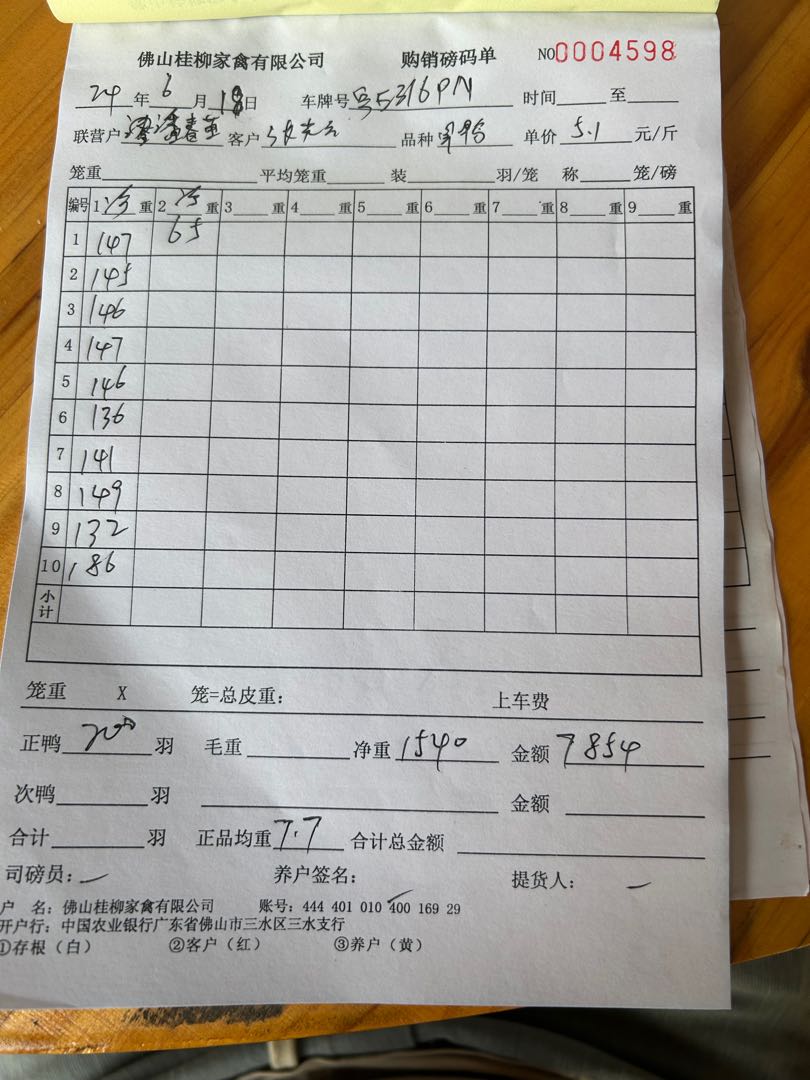 佛山桂柳家禽有限公司 购销磅码单 NO0004598
24年6月18日 车牌号5316PN 时间 至
联营户 客户 品种 单价5.1元/斤
笼重 平均笼重 装 羽/笼 称 笼/磅
编号 1 重 2 重 3 重 4 重 5 重 6 重 7 重 8 重 9 重
1 147 65
2 145
3 146
4 147
5 146
6 136
7 141
8 149
9 132
10 186
小计
笼重 X 笼=总皮重: 上车费
正鸭200羽 毛重 净重1540 金额7854
次鸭 羽 金额
合计 羽 正品均重7.7 合计总金额
司磅员: 养户签名: 提货人:
户 名: 佛山桂柳家禽有限公司 账号: 444 401 010 400 169 29
开户行: 中国农业银行广东省佛山市三水区三水支行
①存根(白) ②客户(红) ③养户(黄)